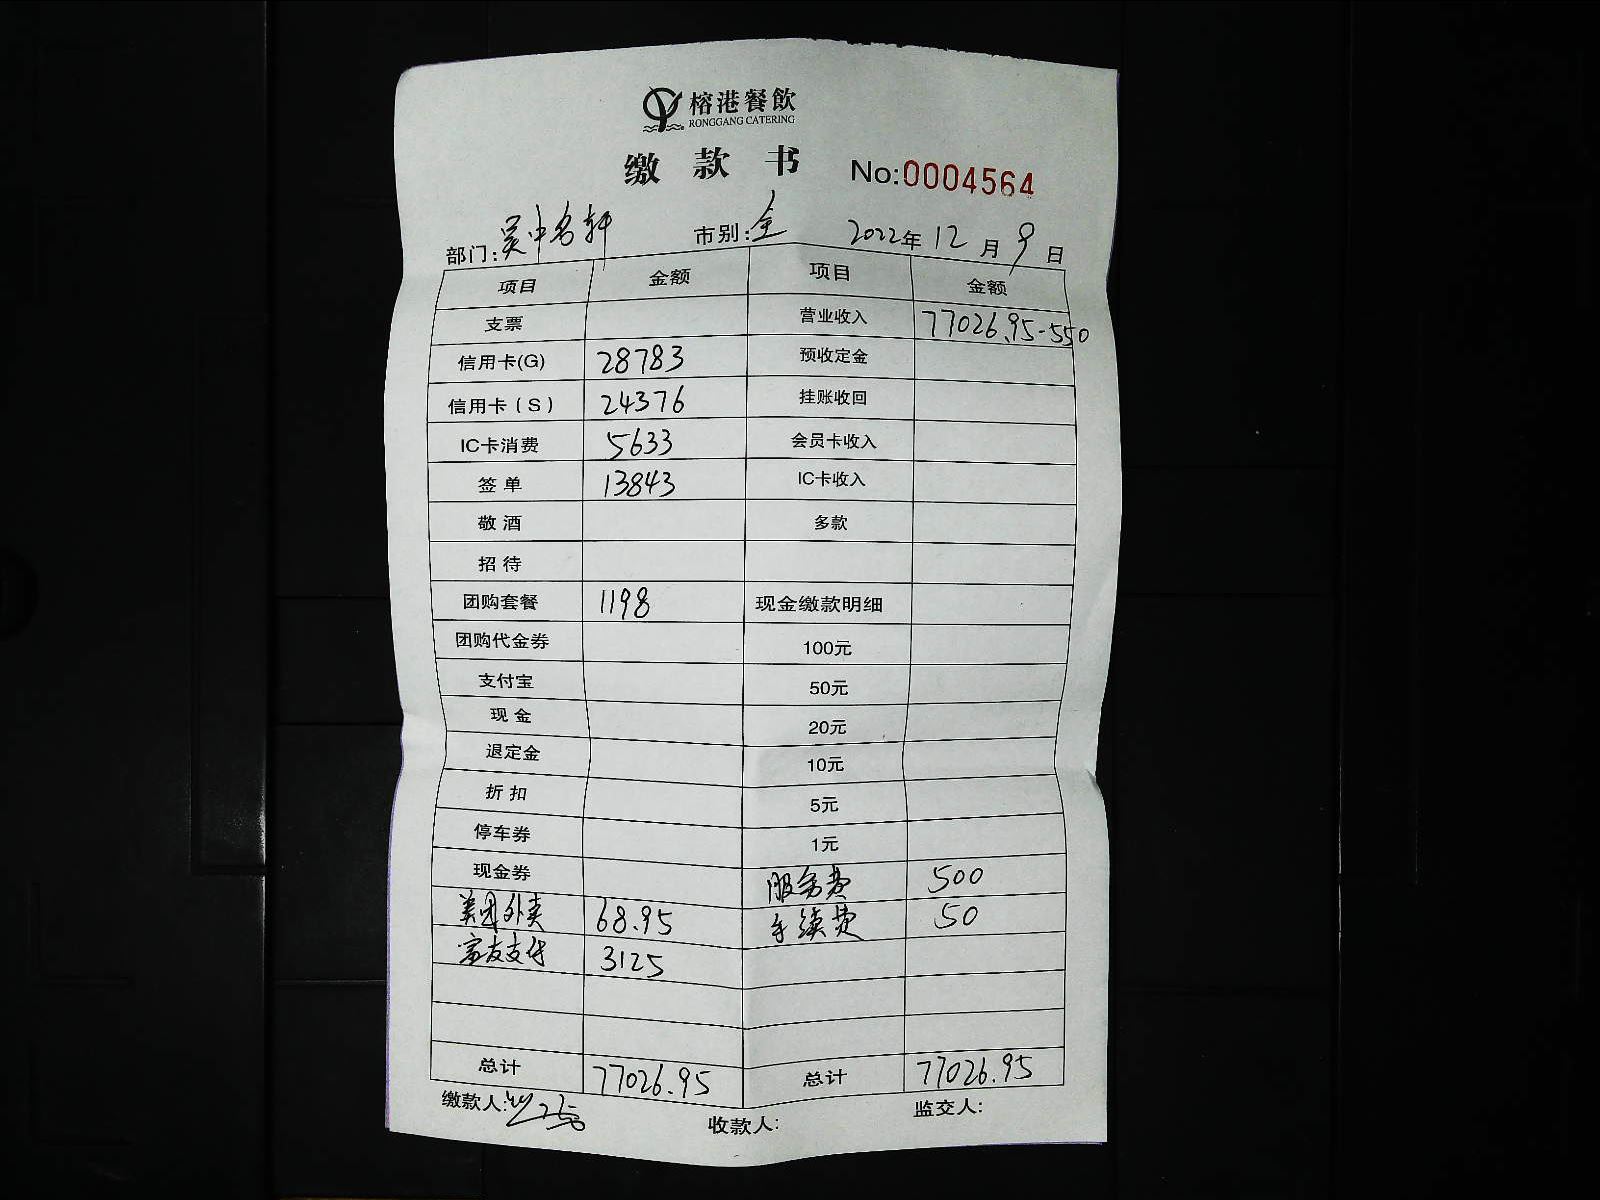 榕港餐飲
RONGGANG CATERING
缴款书 No:0004564
部门:吴中名轩 市别:全 2022年12月9日
项目 金额 项目 金额
支票 营业收入 77026.95-550
信用卡(G) 28783 预收定金
信用卡(S) 24376 挂账收回
IC卡消费 5633 会员卡收入
签单 13843 IC卡收入
敬酒 多款
招待
团购套餐 1198 现金缴款明细
团购代金券 100元
支付宝 50元
现金 20元
退定金 10元
折扣 5元
停车券 1元
现金券 服务费 500
美团外卖 68.95 手续费 50
富友支付 3125
总计 77026.95 总计 77026.95
缴款人: 收款人: 监交人: